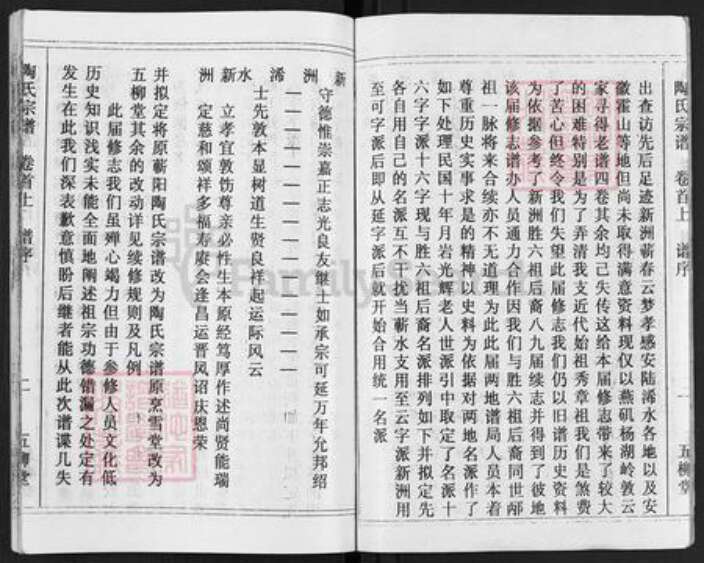 陶氏宗谱 卷首上 谱序 一 五柳堂
出查访先后足迹新洲蕲春云梦孝感安陆浠水各地以及安
徽霍山等地但尚未取得满意资料现仅以燕矶杨湖岭敦云
家寻得老谱四卷其余均己失传这给本届修志带来了较大
的困难特别是为了弄清我支近代始祖秀章祖我们是煞费
了苦心但终令我们失望此届修志我们仍以旧谱历史资料
为依据参考了新洲胜六祖后裔八九届续志并得到了彼地
该届修志谱办人员通力合作因我们与胜六祖后裔同世邴
祖一脉将来合续亦不无道理为此此届两地谱局人员本着
尊重历史实事求是的精神以史料为依据对两地名派作了
如下处理民国十年月岩光辉老人世派引中取定了名派十
六字字派十六字现与胜六祖后裔名派排列如下并拟定先
各自用自己的名派互不干扰当蕲水支用至云字派新洲用
至可字派后即从延字派后就开始合用统一名派
新洲 浠水 新洲
守德惟崇嘉正志光良友继士如承宗可延万年允邦绍
士先敦本显树道生贤良祥起运际风云
立孝宜敦饬尊亲必性生本原经笃厚作述尚贤能瑞
定慈和颂祥多福寿赓会逢昌运晋风诏庆恩荣
并拟定将原蕲阳陶氏宗谱改为陶氏宗谱原烹雪堂改为
五柳堂其余的改动详见续修规则及凡例
此届修志我们虽殚心竭力但由于参修人员文化低
历史知识浅实未能全面地阐述祖宗功德错漏之处定有
发生在此我们深表歉意慎盼后继者能从此次谱谍几失
陶氏宗谱 卷首上 谱序 二 五柳堂
FamilySearch